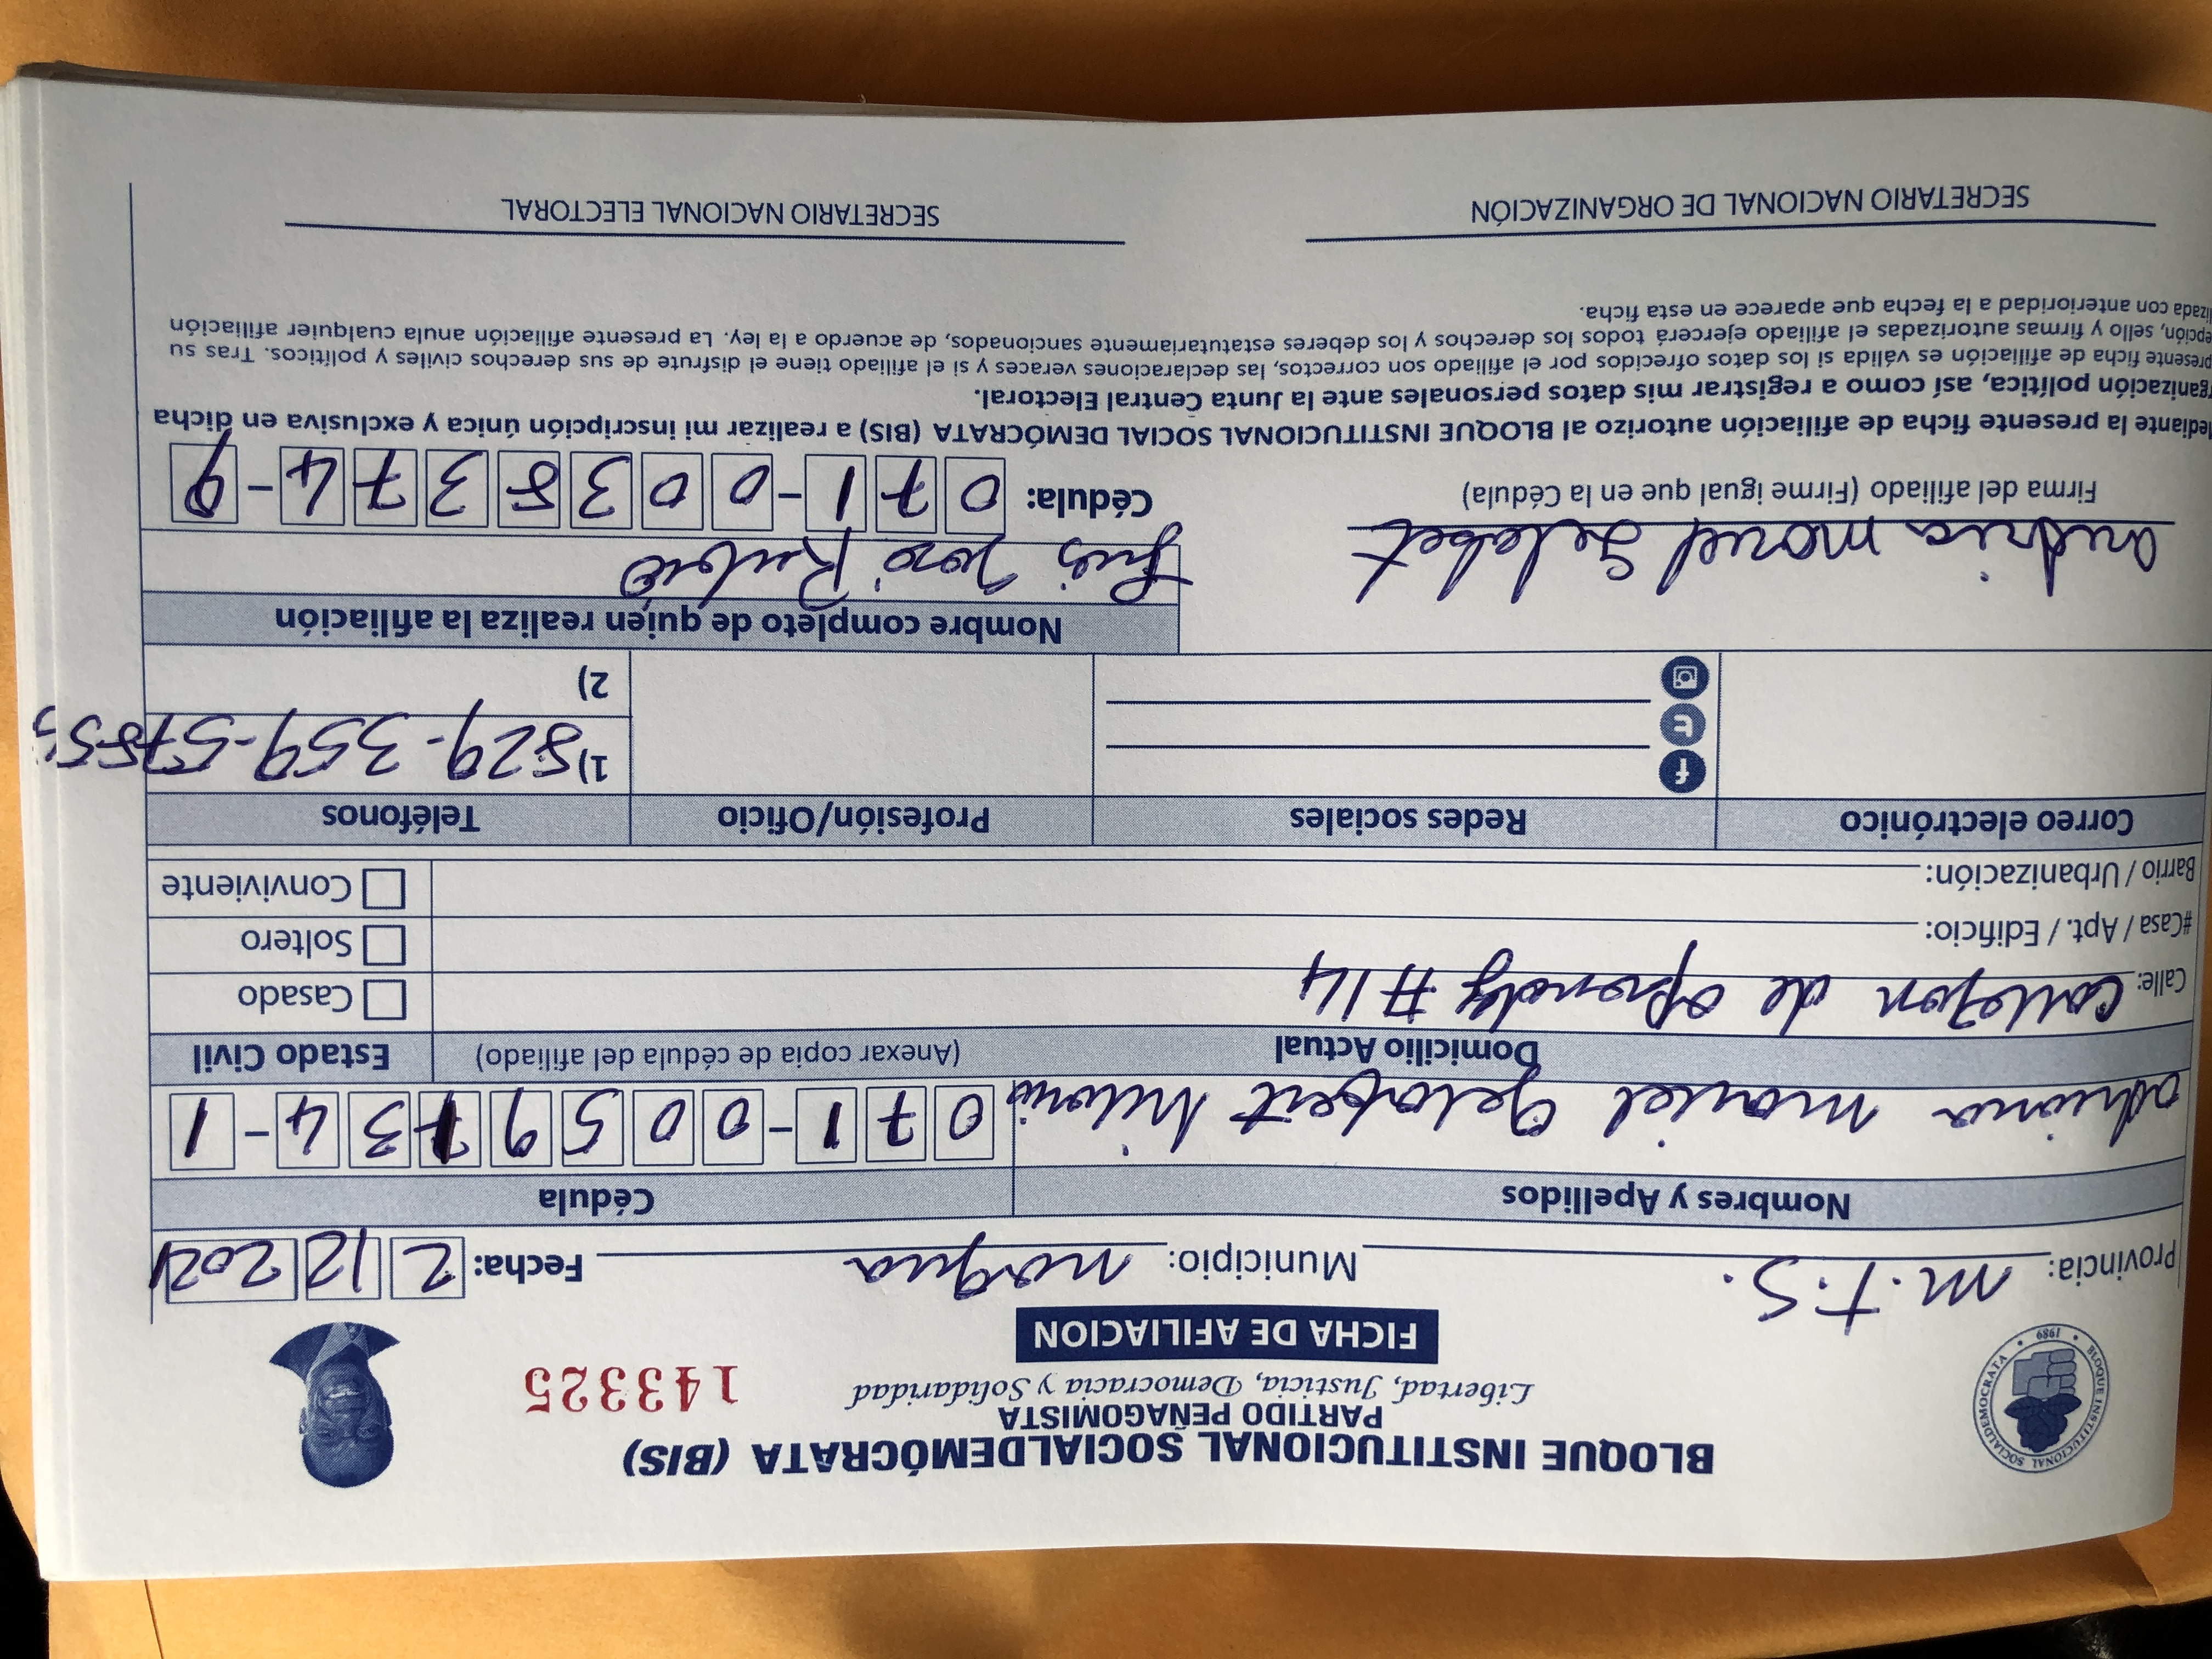 BLOQUE INSTITUCIONAL SOCIALDEMÓCRATA (BIS)
PARTIDO PEÑAGOMISTA
Libertad, Justicia, Democracia y Solidaridad
143325
BLOQUE INSTITUCIONAL SOCIALDEMOCRATA
1989
FICHA DE AFILIACION
Provincia: M.T.S. Municipio: nagua Fecha: 2 12 2021
Nombres y Apellidos Cédula
adriana mariel Gelabert 071-0059734-1
Domicilio Actual (Anexar copia de cédula del afiliado) Estado Civil
Calle: Callejon de #14 Casado
#Casa / Apt. / Edificio: Soltero
Barrio / Urbanización: Conviviente
Correo electrónico Redes sociales Profesión/Oficio Teléfonos
1) 829-359-5785
2)
Nombre completo de quien realiza la afiliación
Luis José Rubio
Firma del afiliado (Firme igual que en la Cédula) Cédula: 071-0038374-9
Mediante la presente ficha de afiliación autorizo al BLOQUE INSTITUCIONAL SOCIAL DEMÓCRATA (BIS) a realizar mi inscripción única y exclusiva en dicha
rganización política, así como a registrar mis datos personales ante la Junta Central Electoral.
presente ficha de afiliación es válida si los datos ofrecidos por el afiliado son correctos, las declaraciones veraces y si el afiliado tiene el disfrute de sus derechos civiles y políticos. Tras su
epción, sello y firmas autorizadas el afiliado ejercerá todos los derechos y los deberes estatutariamente sancionados, de acuerdo a la ley. La presente afiliación anula cualquier afiliación
lizada con anterioridad a la fecha que aparece en esta ficha.
SECRETARIO NACIONAL DE ORGANIZACIÓN SECRETARIO NACIONAL ELECTORAL